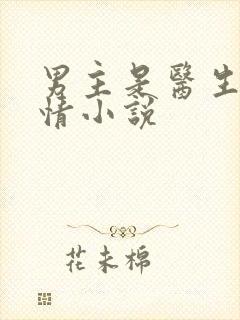 男主是醫生
情小說
花未棉